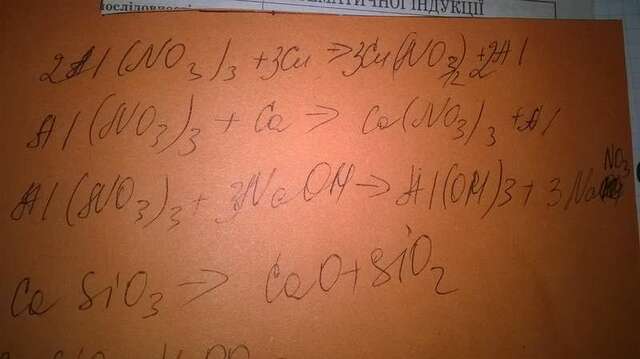 МАТИЧНОЇ ІНДУКЦІЇ
2Al(NO3)3 + 3Cu → 3Cu(NO3)2 + 2Al
Al(NO3)3 + Ca → Ca(NO3)3 + Al
Al(NO3)3 + 3NaOH → Al(OH)3 + 3NaNO3
CaSiO3 → CaO + SiO2